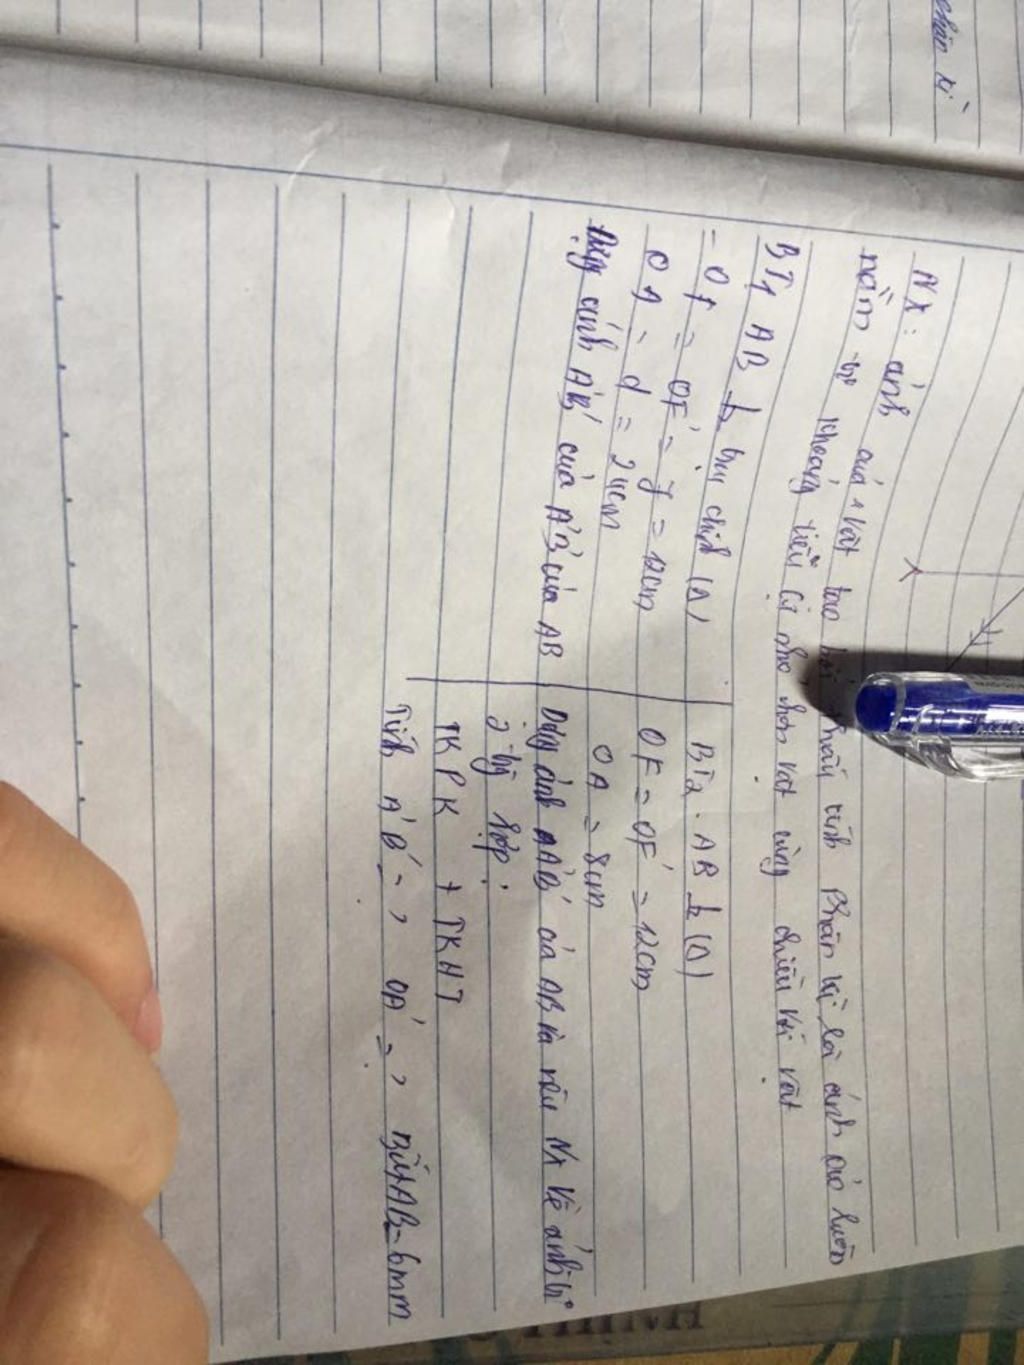 phân kì
NX: ảnh của 1 vật tạo bởi thấu kính phân kì là ảnh ảo luôn
nằm trg khoảng tiêu cự nhỏ hơn vật cùng chiều với vật
BT1 AB ⊥ trục chính (Δ)
- OF = OF' = f = 12cm
OA = d = 24cm
Dựng ảnh A'B' của A'B' của AB
BT2. AB ⊥ (Δ)
OF = OF' = 12cm
OA = 8cm
Dựng ảnh A'B' của AB và nêu NX về ảnh
2 trg hợp.
TKPK + TKHT
Tính A'B' = ? OA' = ? Biết AB = 6mm